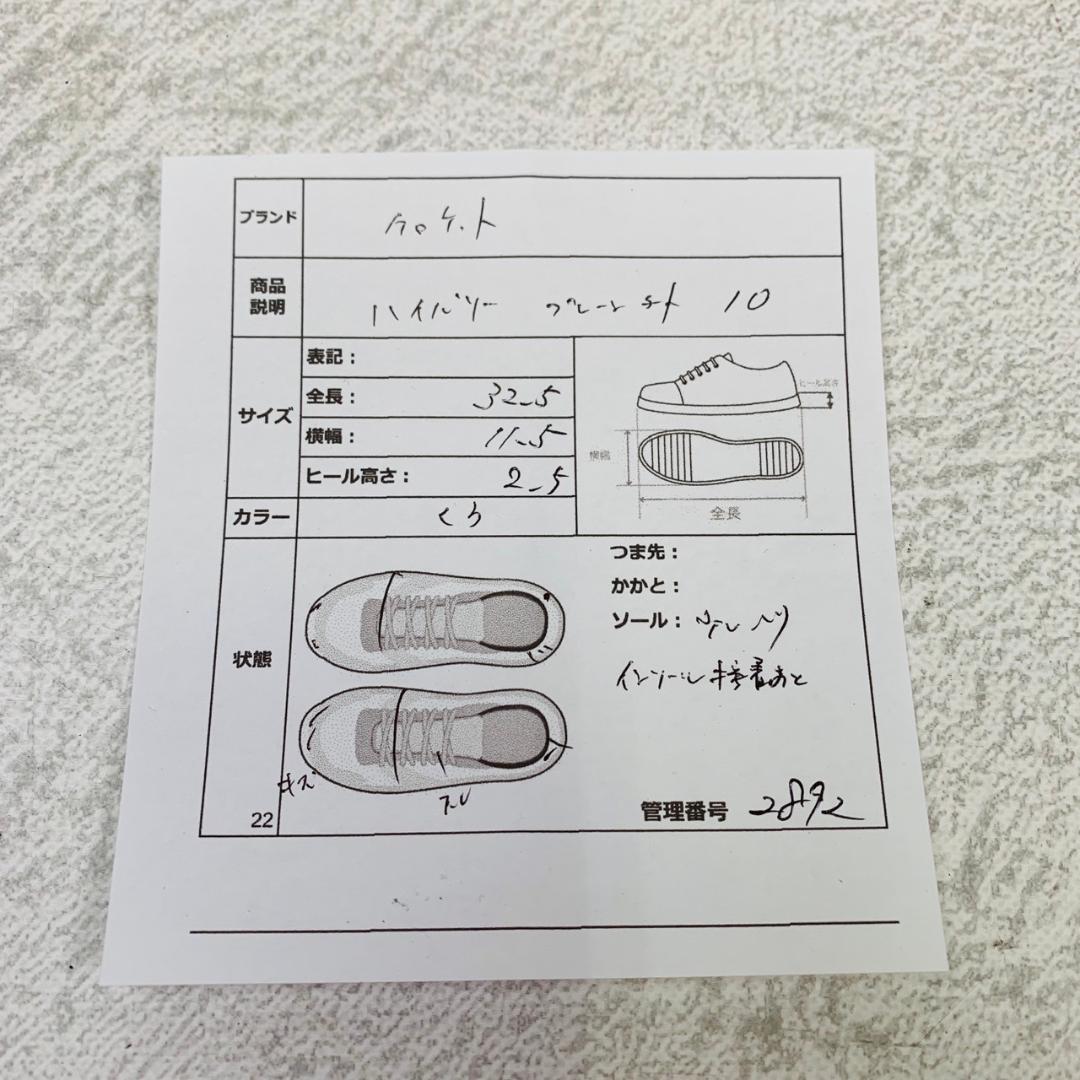 ブランド
クロケット
商品
説明
10
サイズ
表記：
全長： 32.5
横幅： 11.5
ヒール高さ： 2.5
ヒール高さ
横幅
全長
カラー くろ
状態
つま先：
かかと：
ソール：
インソール接着あと
キズ
スレ
22
管理番号 2892